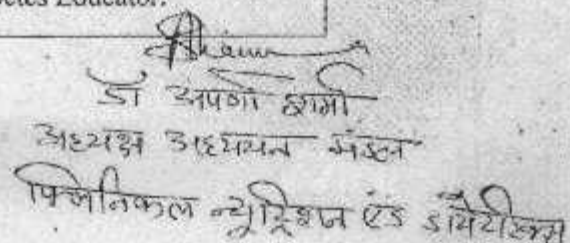 Educator.
डॉ अपर्णा शर्मा
अध्यक्ष अध्ययन मंडल
क्लिनिकल न्यूट्रिशन एंड डायटीटिक्स